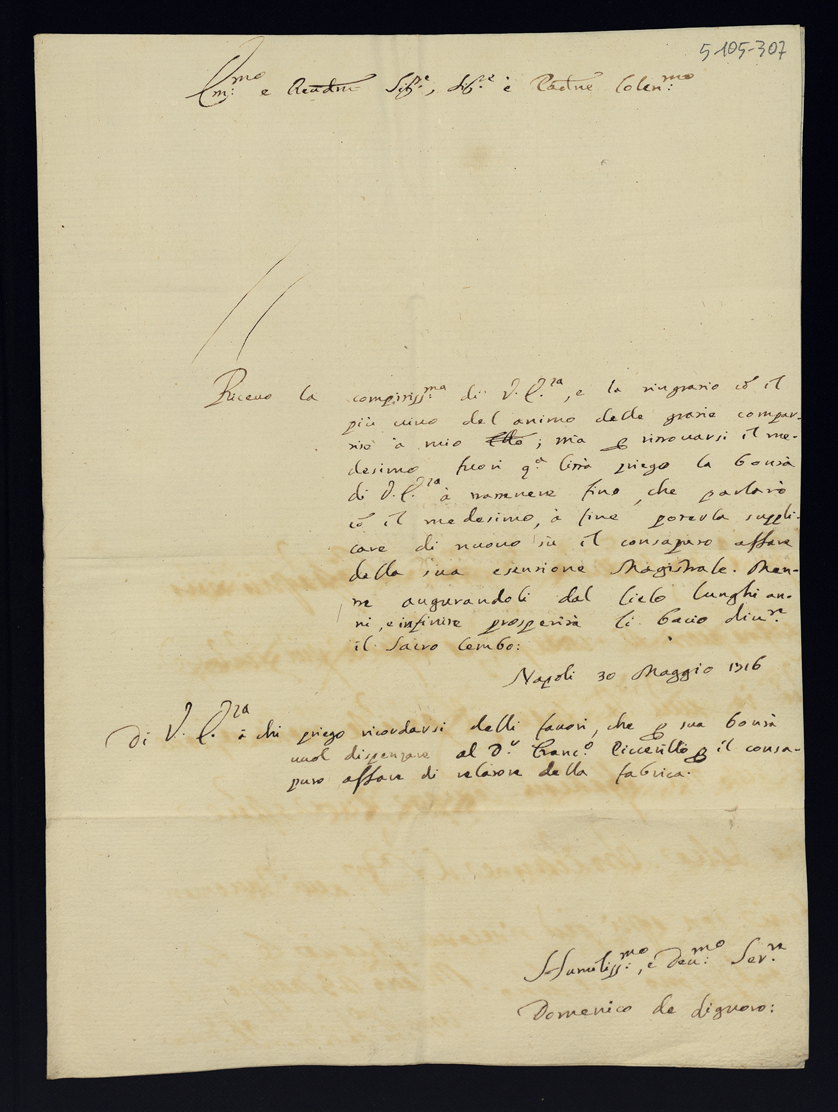 5-105-307
Em:mo e Reudm Sig.re, Sig.re e Padne Colen:mo
Riceuo la compitiss:ma di V. E.za, e la ringratio cõ il
più uiuo del animo delle gratie compar-
tite à mio ; mà ꝑ ritrouarsi il me-
desimo fuori q.a Città priego la bontà
di V. E.za à trattenere fino, che parlarò
cõ il medesimo, à fine poterla suppli-
care di nuouo sù il consaputo affare
della sua esentione Magistrale. Men-
tre augurandoli dal Cielo lunghi an-
ni, e infinite prosperità li bacio diu.te
il Sacro lembo:
Napoli 30 Maggio 1716
Di V. E.za à chi priego ricordarsi delli fauori, che ꝑ sua bontà
uuol dispenzare al D.r Franc.o Piccerillo ꝑ il consa-
puto affare di della fabrica.
Humiliss:mo, e Deu:mo Ser.re
Domenico de Lignoro: